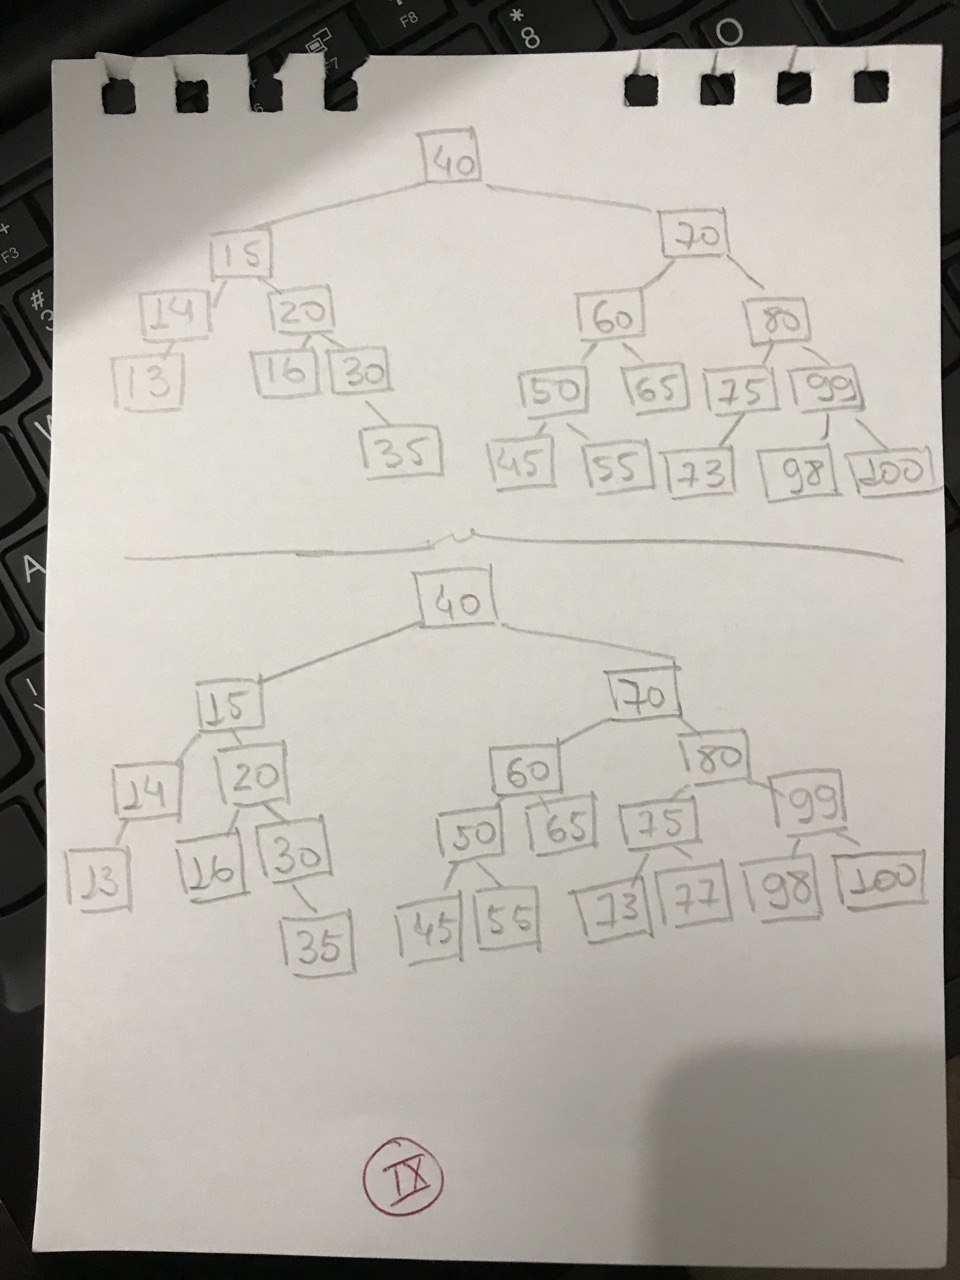 F8
* 8
O
F7
6
+
F3
#
3
A
40
15 70
14 20 60 80
13 16 30 50 65 75 99
35 45 55 73 98 100
40
15 70
14 20 60 80
13 16 30 50 65 75 99
35 45 55 73 77 98 100
IX